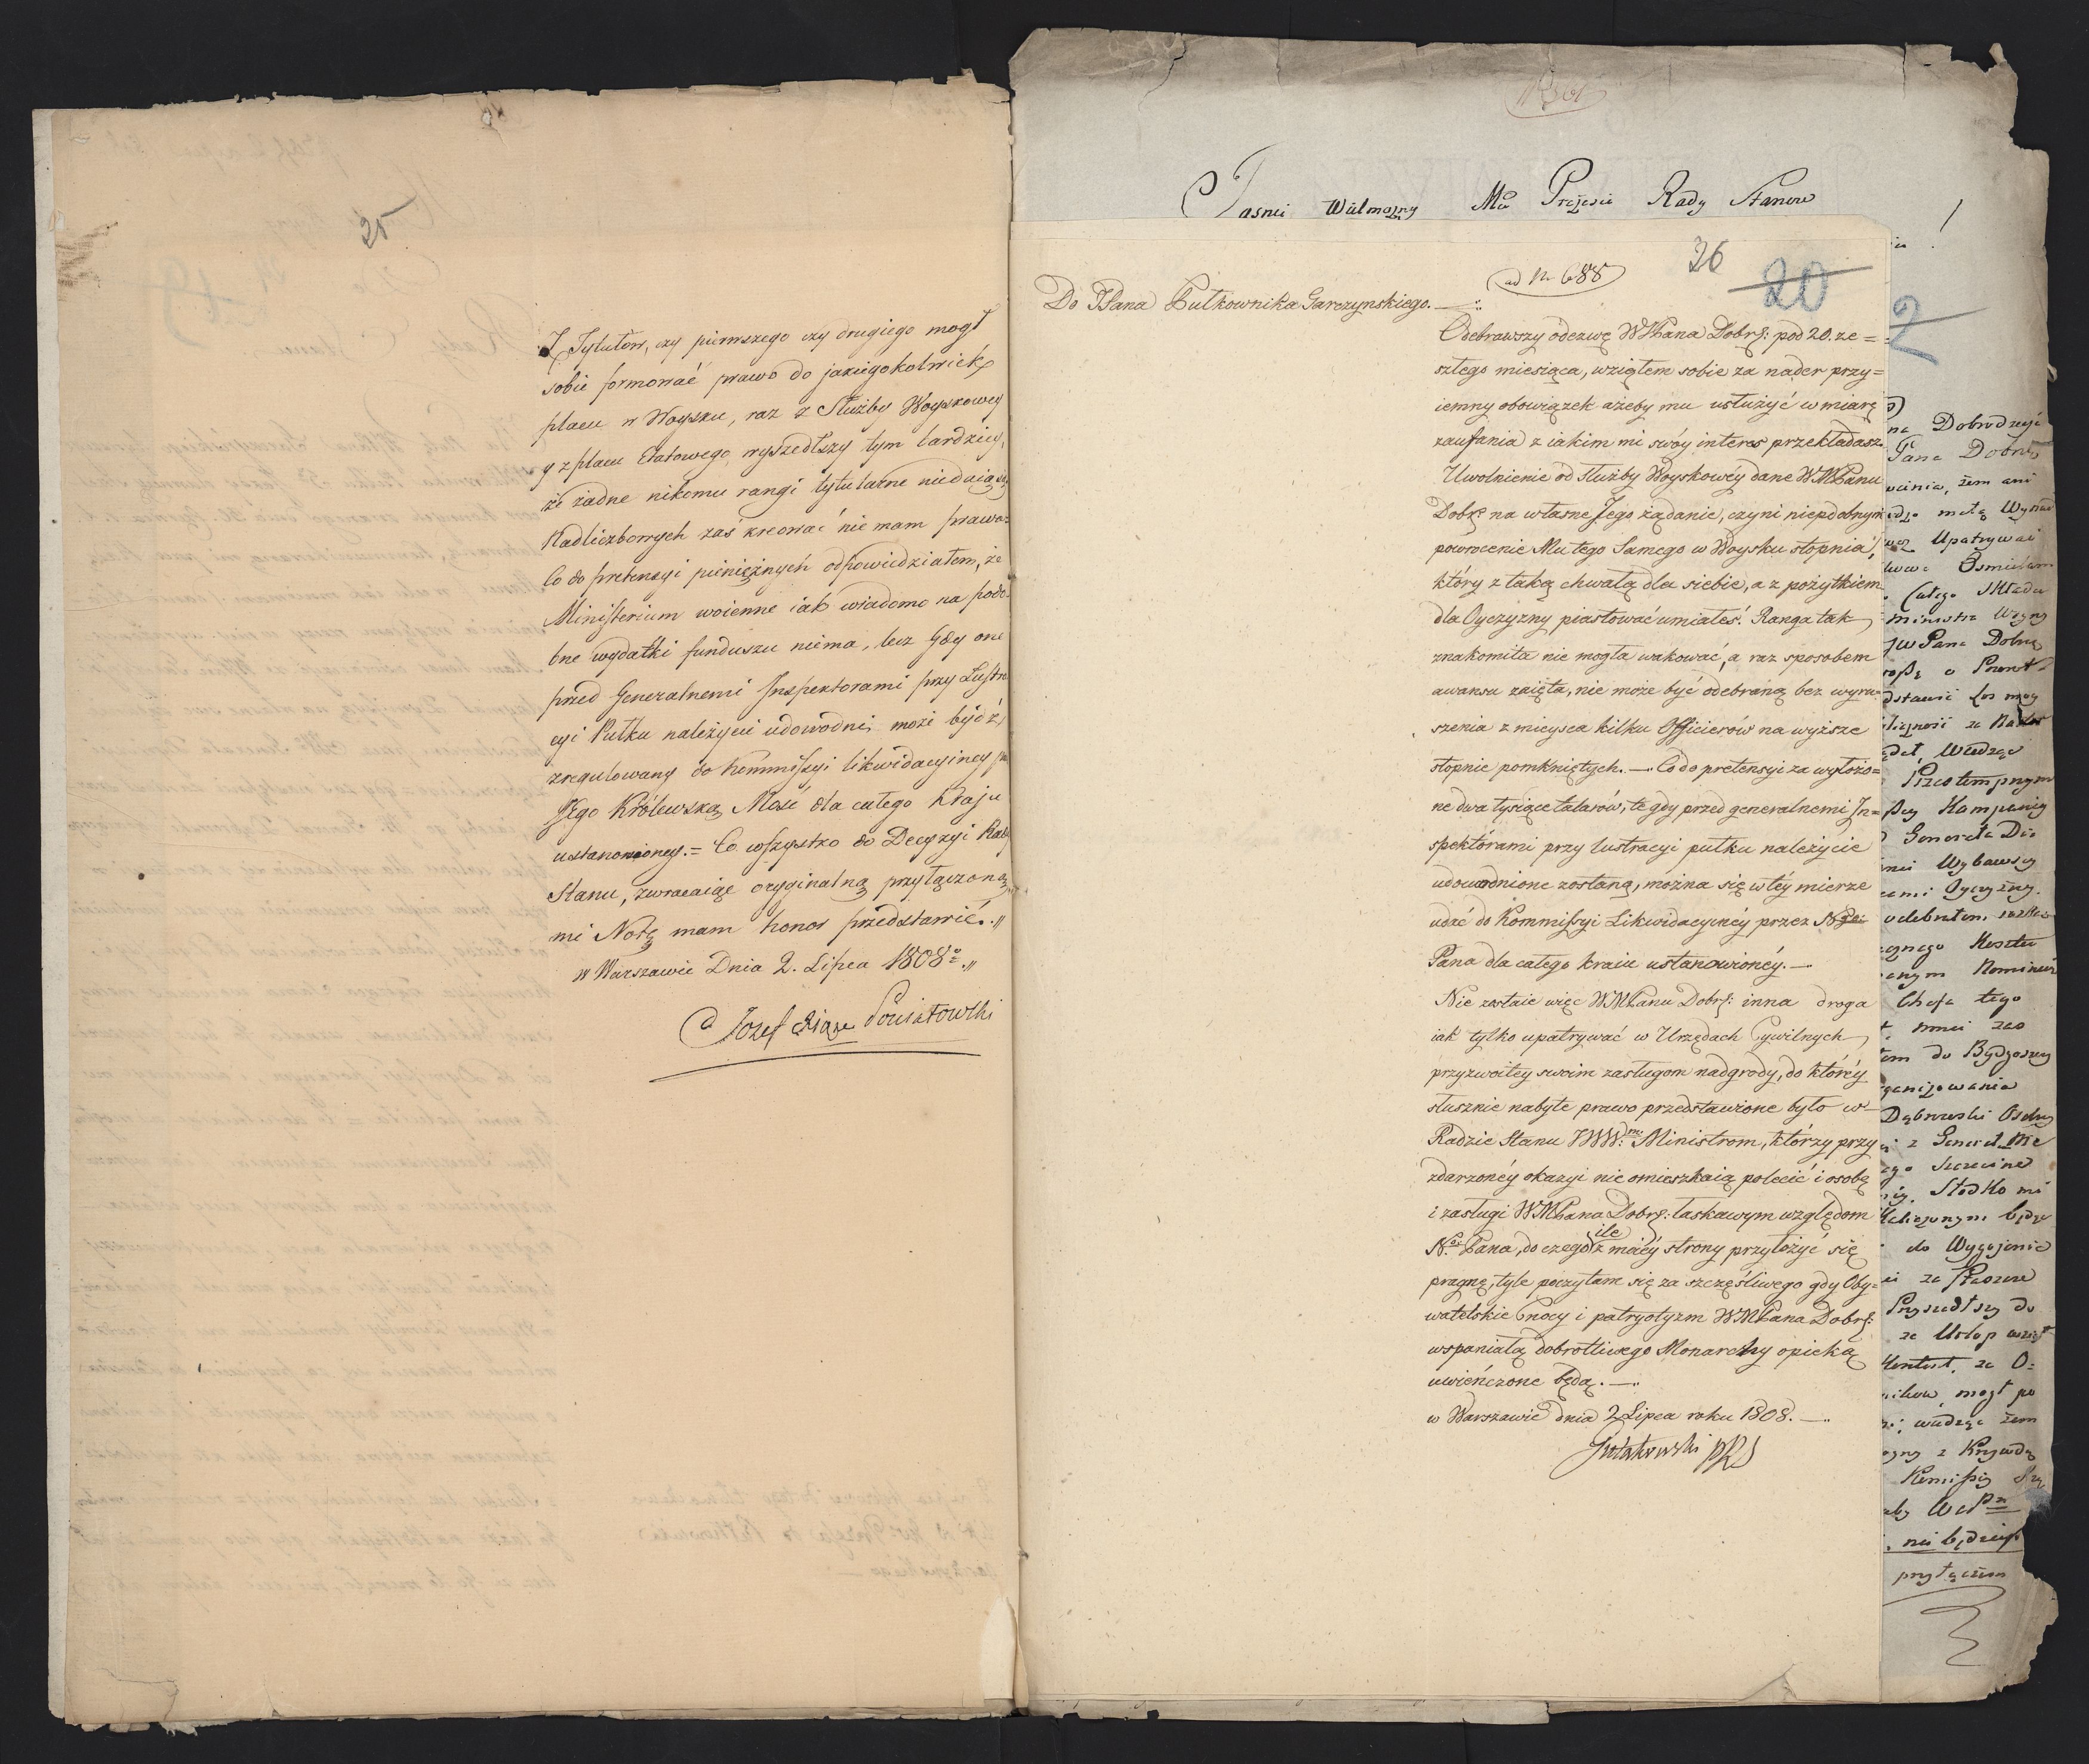 25
Z Tytułów, czy pierwszego czy drugiego mogł
sobie formować prawo do jakiegokolwiek
placu w Woysku, raz z Służby Woyskowey
y z placu Etatowego wyszedłszy tym bardziey,
że żadne nikomu rangi tytularne niedaią się
Nadliczbowych zaś kreować nie mam prawa.
Co do pretensyi pieniężnych odpowiedziałem, że
Ministerium woienne iak wiadomo na podo-
bne wydatki funduszu niema, lecz gdy one
przed Generalnemi Inspektorami przy Lustra
cyi Pułku należycie udowodni, może bydź
zregulowany do Kommissyi likwidacyiney
Jego Królewską Mość dla całego Kraju
ustanowioney.= Co wszystko do Decyzyi Rady
Stanu, zwracaiąc oryginalną przyłączoną
mi Notę mam honor przedstawić.
w Warszawie Dnia 2. Lipca 1808.
Jozef Xiąże Poniatowski
Jasnie Wielmozny Mci Prezesie Rady Stanow
!
26
20
2
ad Nr 688
Do JPana Pułkownika Garczynskiego.
Odebrawszy odezwę WMPana Dobrz: pod 20. ze=
szłego miesiąca, wziąłem sobie za nader przy=
iemny obowiązek ażeby mu usłużyć w miarę
zaufania z iakim mi swóy interes przekładasz.
Uwolnienie od służby Woyskowéy dane WMPanu
Dobr: na własne Jego żądanie, czyni niepodobnym
powrocenie Mu tego Samego w Woysku stopnia,
który z taką chwałą dla siebie, a z pożytkiem
dla Oyczyzny piastować umiałeś. Ranga tak
znakomita nie mogła wakować, a raz sposobem
awansu zaięta, nie może być odebraną bez wyru=
szenia z mieysca kilku Officierów na wyższe
stopnie pomkniętych.— Co do pretensyi za wyłożo=
ne dwa tysiące talarów, te gdy przed generalnemi In=
spektórami przy lustracyi pułku należycie
udowodnione zostaną, można się w téy mierze
udać do Kommissyi Likwidacyinéy przez N.
Pana dla całego kraiu ustanowionéy.—
Nie zostaie więc WMPanu Dobrz: inna droga
iak tylko upatrywać w Urzędach Cywilnych
przyzwoitey swoim zasługom nadgrody, do któréy
słusznie nabyte prawo przedstawione było w
Radzie Stanu JWW. Ministrom, którzy przy
zdarzonéy okazyi nie omieszkaią polecić i osobę
i zasługi WMPana Dobrz: łaskawym względom
N. Pana, do czego ile z moiéy strony przyłożyć się
pragnę, tyle poczytam się za szczęśliwego gdy Oby=
watelskie Cnoty i patryotyzm WMPana Dobrz:
wspaniałą dobrotliwego Monarchy opieką
uwieńczone będą.—
w Warszawie dnia 2 Lipca roku 1808.—
Gutakowski PRS
Dobrodzieja
Pana Dobr
żem ani
Upatrywai
Całego Składu
JW Pana Dobr
Widząc
Kampanij
Generała
Oyczyzny
odebrałem
Kosztu
Chcąc tego
do Bydgoszczy
Dąbrowski
z Generał
do Wygojenia
Przyszedłszy do
mogł po
widząc żem
z Krzywdą
nie będzie
przyłączam